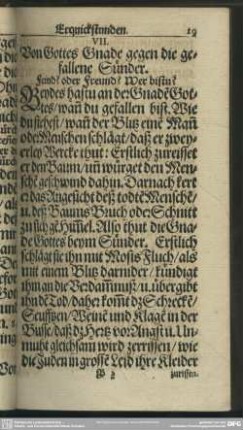 Erquickstunden. 19
VII.
Von Gottes Gnade gegen die ge-
fallene Sünder.
Feind oder Freund? Wer bistu?
Beydes hastu an der Gnade Got-
tes/ wañ du gefallen bist. Wie
du siehest/ wañ der Blitz eine Mañ
oder Menschen schlägt/ daß er zweyer-
ley Wercke thut: Erstlich zureisset
er den Baum/ uñ würget den Men-
schē geschwind dahin. Darnach kert
er das Angesicht deß todtē Menschē/
u. deß Baums Bruch oder Schnitt
zu sich gē Him̃el. Also thut die Gna-
de Gottes beym Sünder. Erstlich
schlägt sie ihn mit Mosis Fluch/ als
mit einem Blitz darnider/ kündigt
ihm an die Verdam̃nuß/ u. übergibt
ihn dē Tod/ daher kom̃t dz Schreckē/
Seufftzen/ Weinē und Klagē in der
Busse/ daß dz Hertz vor Angst u. Un-
muht gleichsam wird zerryssen/ wie
die Juden in grosse Leid ihre Kleider
zurissen.